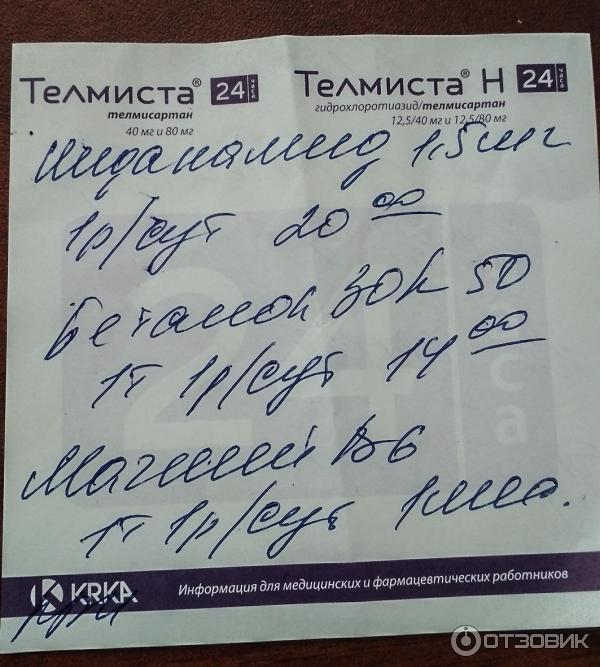 Телмиста® 24 часа
телмисартан
40 мг и 80 мг
Телмиста® Н 24 часа
гидрохлоротиазид/телмисартан
12,5/40 мг и 12,5/80 мг
1,5 мг
1р/сут 20 00
Беталок ЗОК 50
1т 1р/сут 14 00
Магний В6
1т 1р/сут 1 мес.
24 часа
KRKA
Информация для медицинских и фармацевтических работников
ОТЗОВИК